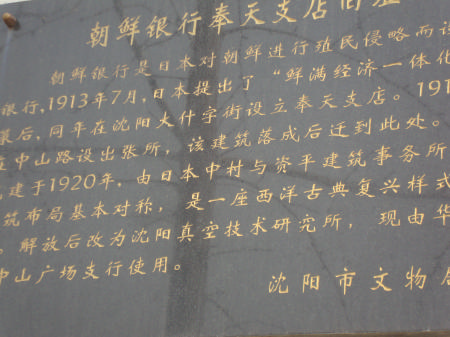 朝鲜银行奉天支店旧址
朝鲜银行是日本对朝鲜进行殖民侵略而设
银行,1913年7月,日本提出了“鲜满经济一体化
幕后,同年在沈阳大什字街设立奉天支店。191
中山路设出张所,该建筑落成后迁到此处。
建于1920年,由日本中村与资平建筑事务所
筑布局基本对称,是一座西洋古典复兴样式
。解放后改为沈阳真空技术研究所,现由华
中山广场支行使用。
沈阳市文物